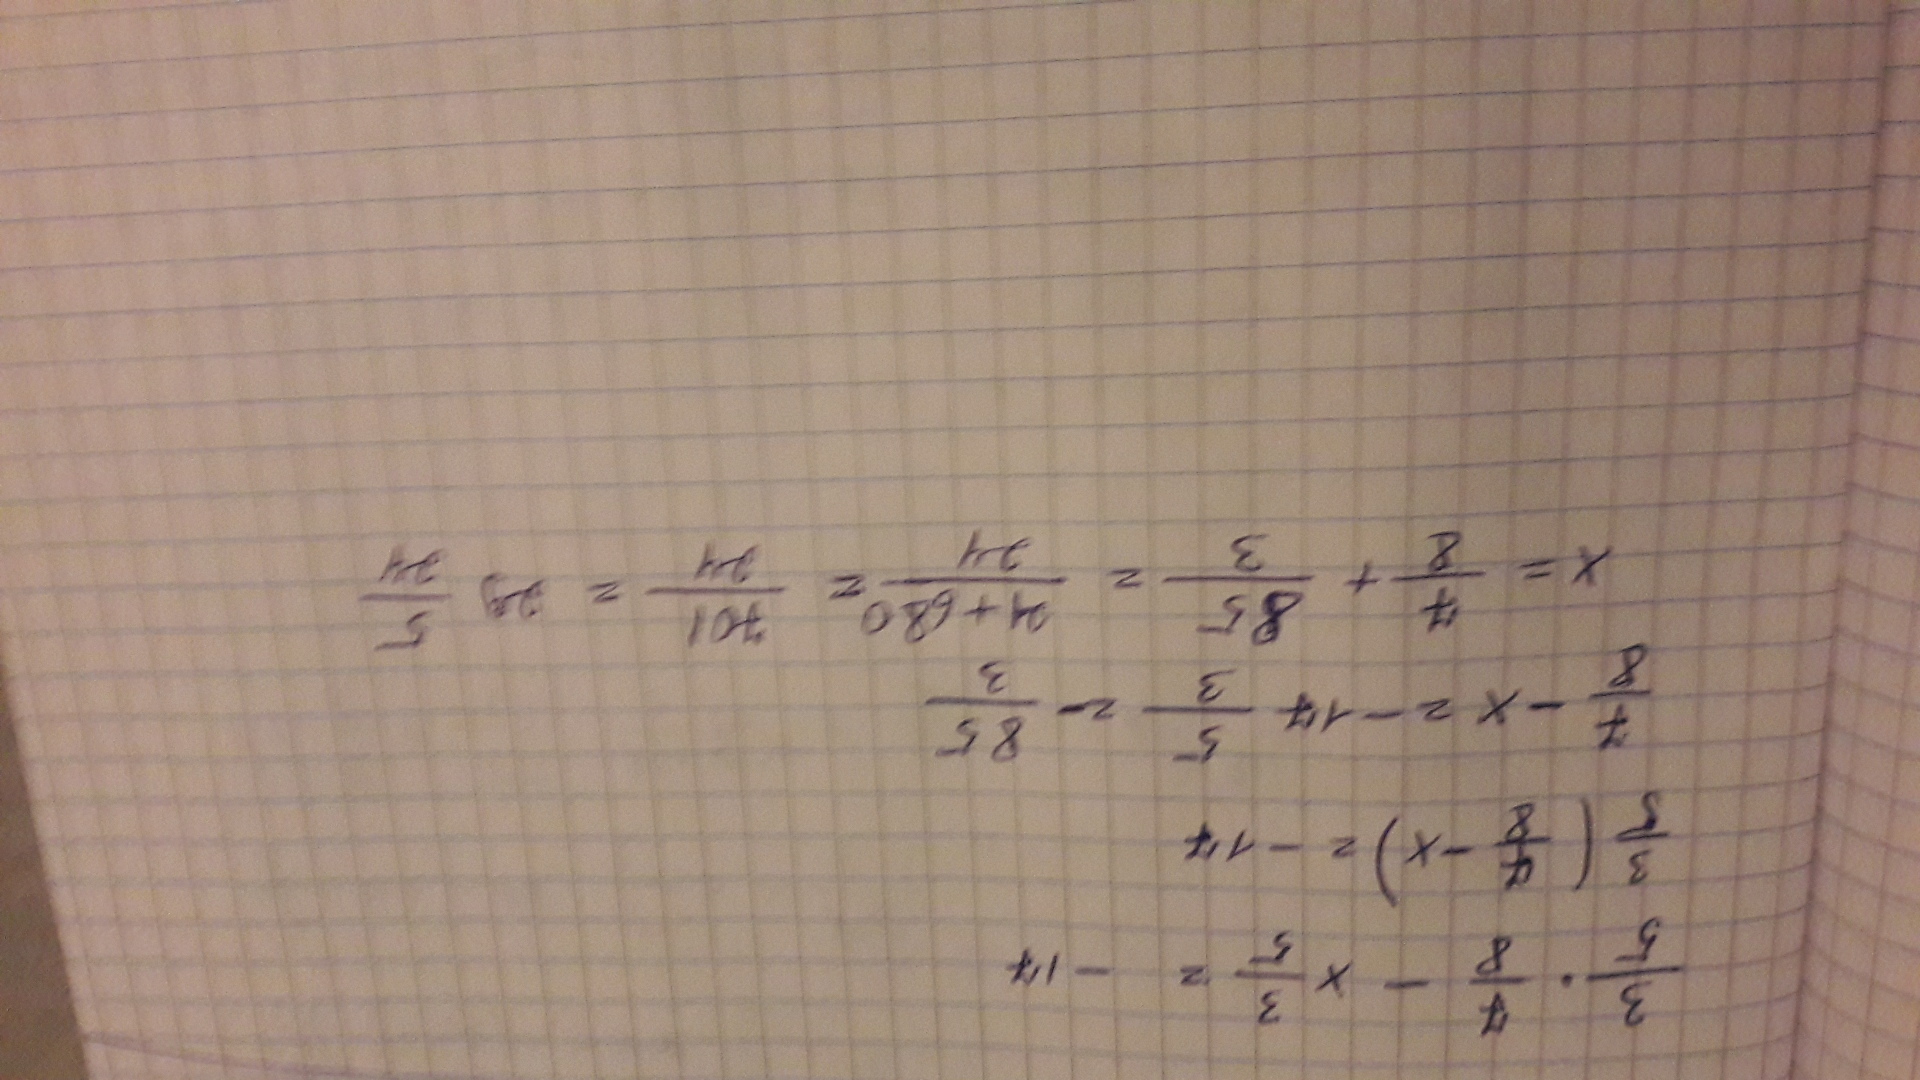 3/5 · 7/8 - x 3/5 = -17
3/5 (7/8 - x) = -17
7/8 - x = -17 5/3 = - 85/3
x = 7/8 + 85/3 = 21+680/24 = 701/24 = 29 5/24